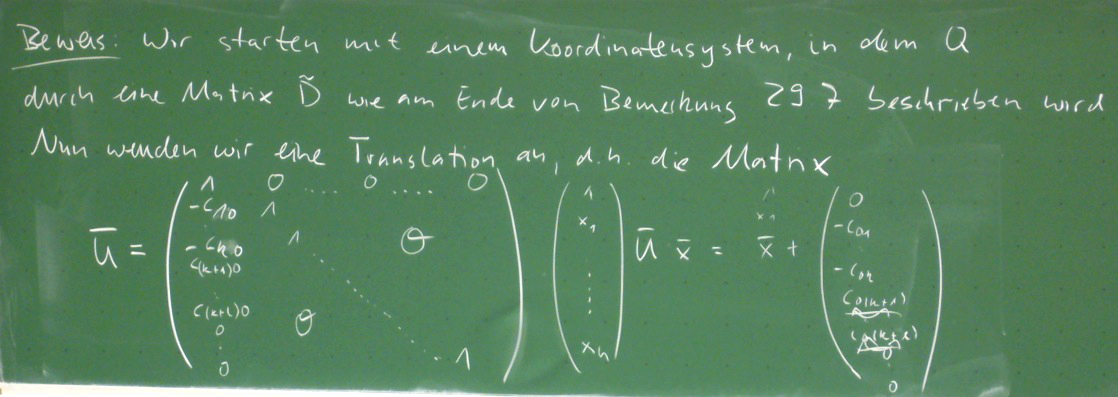 Beweis: Wir starten mit einem Koordinatensystem, in dem Q
durch eine Matrix D̃ wie am Ende von Bemerkung 29 7 beschrieben wird
Nun wenden wir eine Translation an, d.h. die Matrix
1 0 ..... 0 ..... 0
-C10 1
Ū = -Ck0 1 0 Ū x̄ = x̄ +
C(k+1)0
C(k+l)0 0
0
0 1
1
x1
xn
1
x1
0
-C01
-C0k
C0(k+1)
0
0